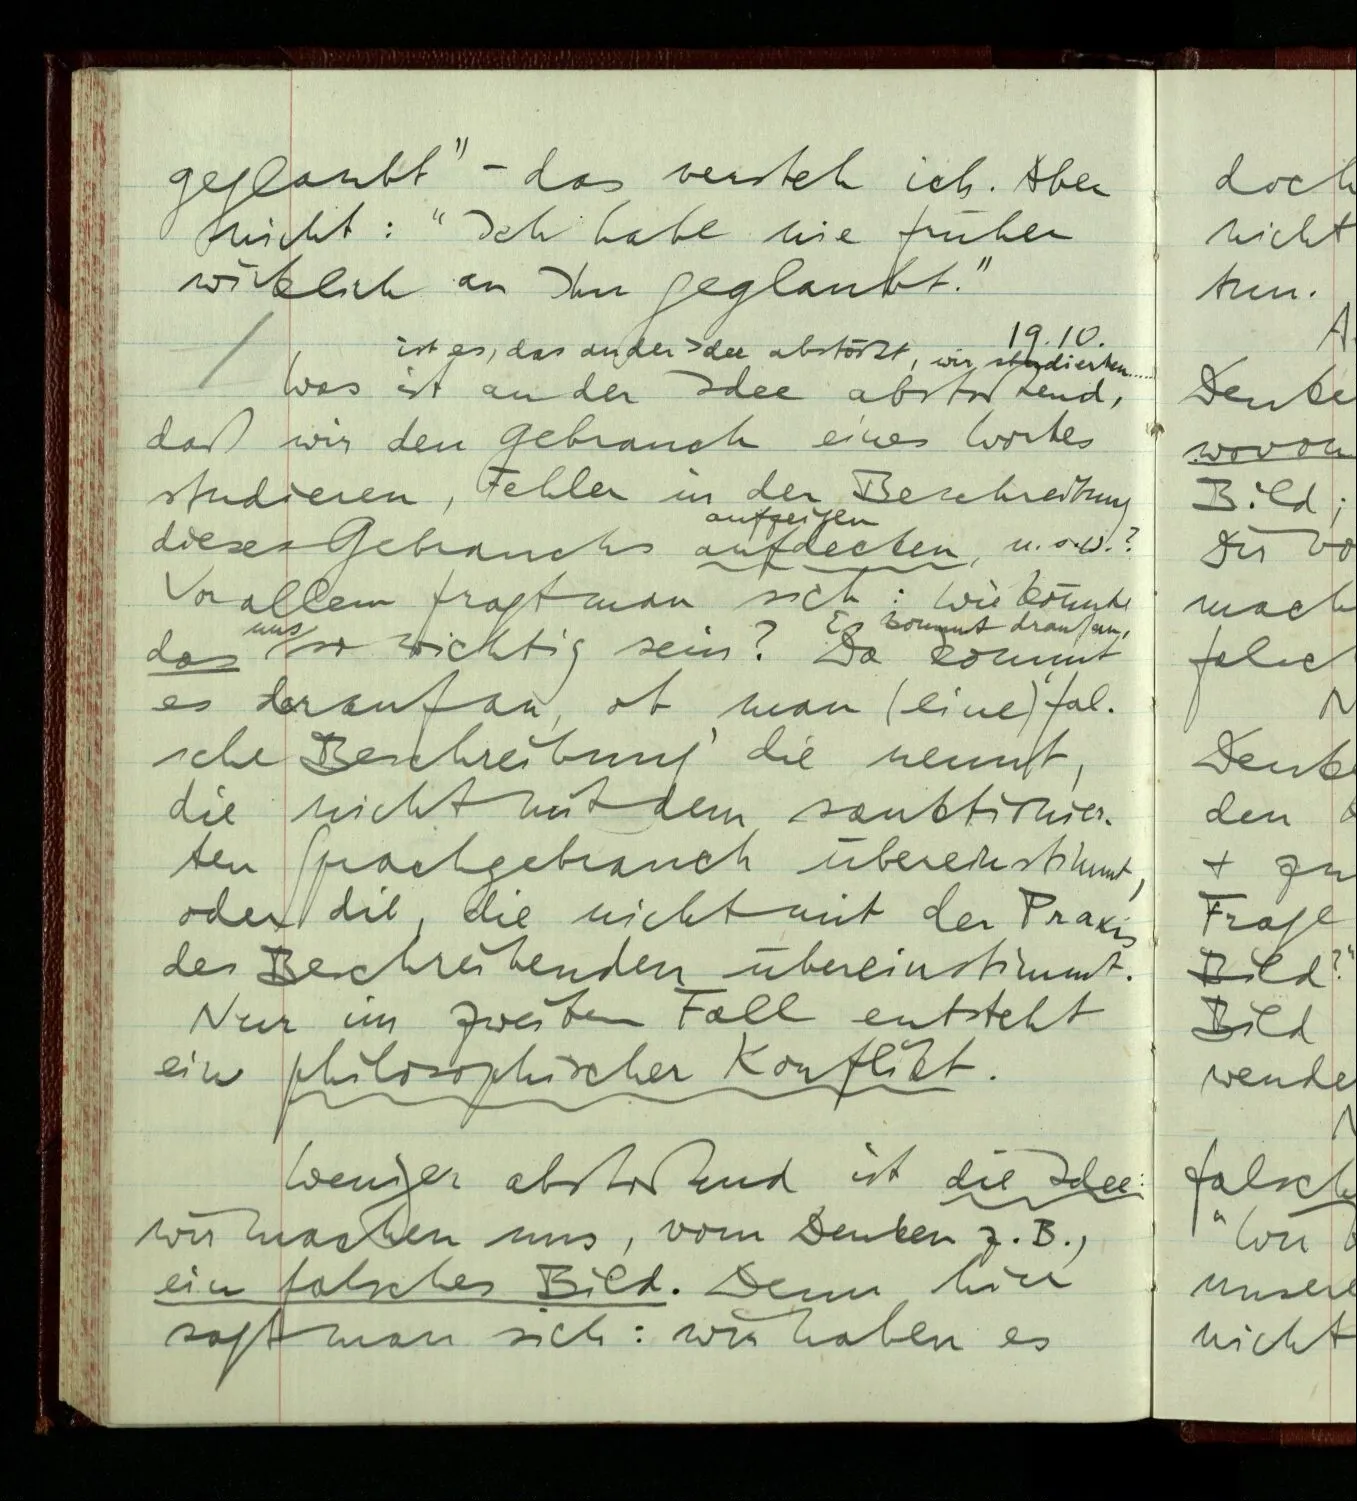 geglaubt" – das versteh ich. Aber
nicht: "Ich habe nie früher
wirklich an Ihn geglaubt."
19.10.
ist es, das an der Idee abstößt, wir studierten.....
Was ist an der Idee abstoßend,
daß wir den Gebrauch eines Wortes
studieren, Fehler in der Beschreibung
aufzeigen
dieses Gebrauchs aufdecken, u.s.w.?
Vor allem fragt man sich: Wie könnte
uns Es kommt drauf an,
das so wichtig sein? Da kommt
es darauf an, ob man (eine) 'fal-
sche Beschreibung' die nennt,
die nicht mit dem sanktionier-
ten Sprachgebrauch übereinstimmt,
oder die, die nicht mit der Praxis
des Beschreibenden übereinstimmt.
Nur im zweiten Fall entsteht
ein philosophischer Konflikt.
Weniger abstoßend ist die Idee:
wir machen uns, vom Denken z.B.,
ein falsches Bild. Denn hier
sagt man sich: wir haben es
doch
nicht
tun.
A
Denke
wovon
Bild;
Die vo
mach
falsch
N
Denke
den
+ zu
Frage
Bild?"
Bild
wende
N
falsch
"Wir
unsere
nicht